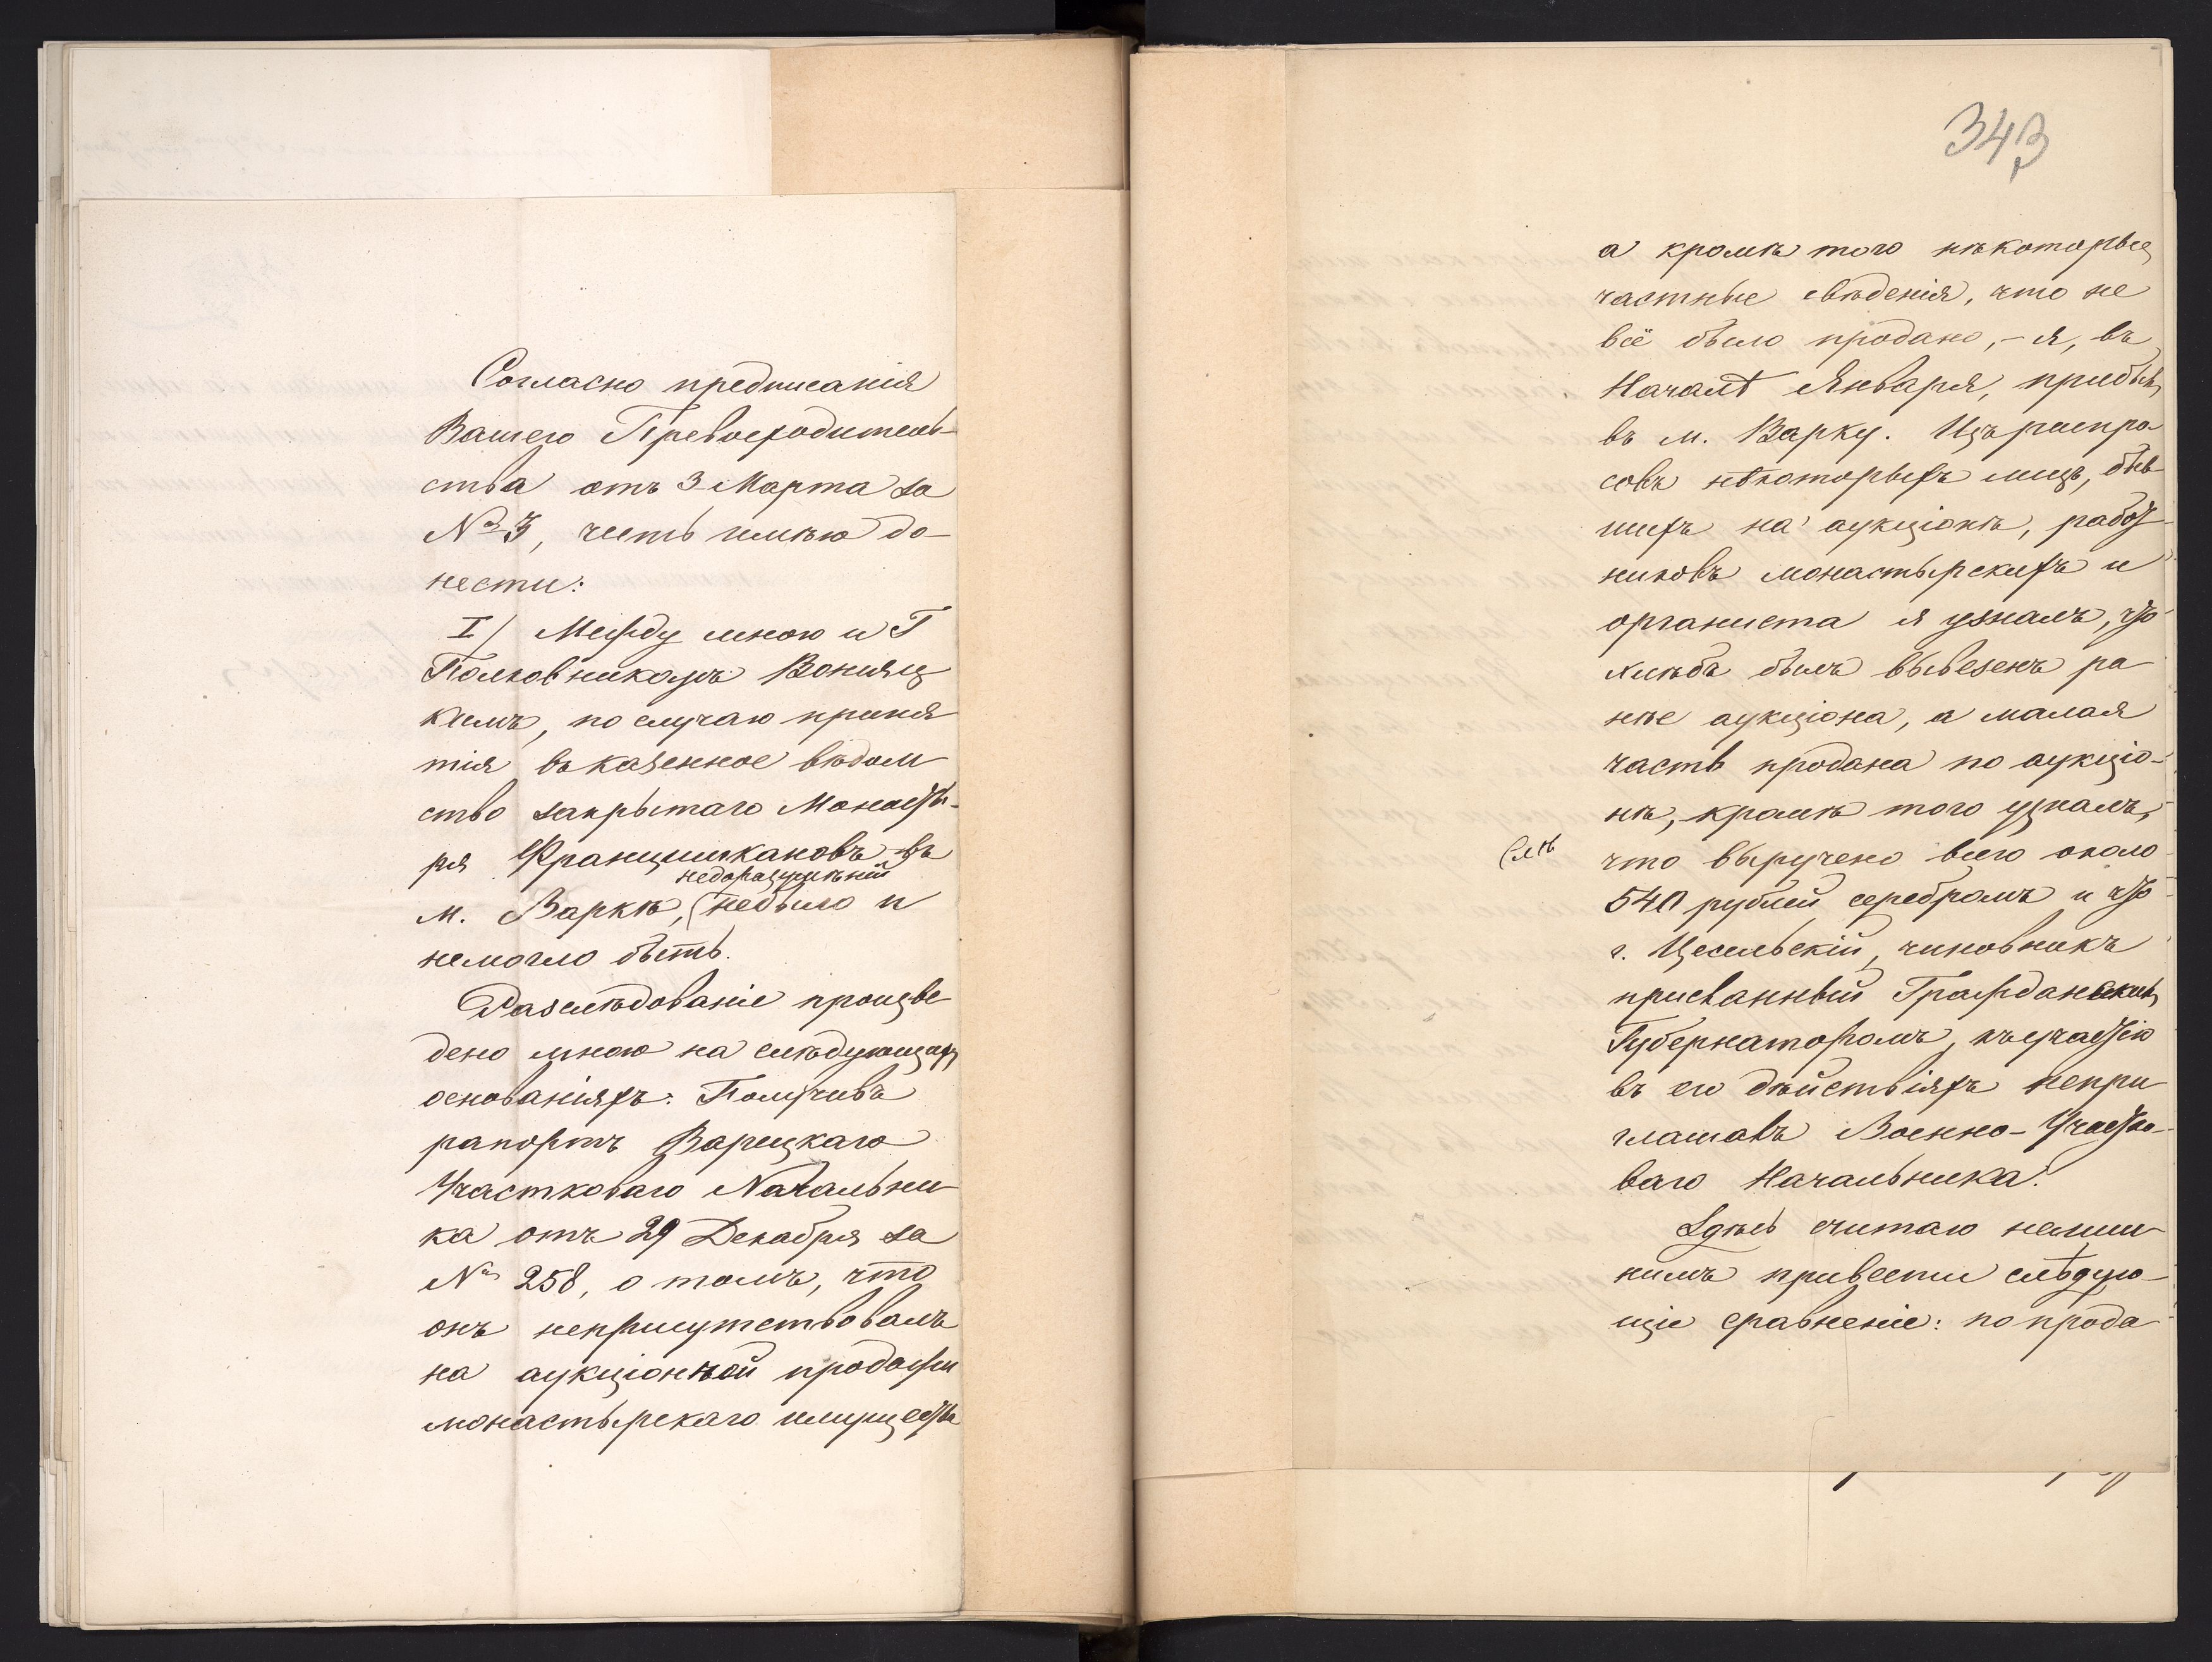 Согласно предписанія
Вашего Превосходитель-
ства отъ 3 Марта за
№ 3, честь имѣю до-
нести:
I/ Между мною и Г
Полковникомъ Воняц
кимъ, по случаю приня
тія въ казенное вѣдом
ство закрытаго Монасты-
ря Францишкановъ въ
недоразумѣній
м. Варкѣ, небыло и
немогло быть.
Разслѣдованіе произве
дено мною на слѣдующихъ
основаніяхъ: Получивъ
рапортъ Варецкаго
Участковаго Начальни
ка отъ 29 Декабря за
№ 258, о томъ, что
онъ неприсутствовалъ
на аукціонной продажи
монастырскаго имущества
343
а кромѣ того нѣкоторые
частные свѣденія, что не
всё было продано, - я, въ
Началѣ Января, прибылъ
въ м. Варку. Изъ распро
совъ нѣкоторыхъ лицъ, быв
шихъ на аукціонѣ, работ
никовъ монастырскихъ и
органиста я узналъ, что
хлѣбъ былъ вывезенъ ра
нѣе аукціона, а малая
часть продана по аукціо-
нѣ, кромѣ того узналъ,
что выручено всего около
540 рублей серебромъ и что
г. Цесельскій, чиновникъ
присланный Гражданскимъ
Губернаторомъ, къ участію
въ его дѣйствіяхъ непри
глашавъ Военно-Участко-
ваго Начальника.
Здѣсь считаю нелиш
нимъ привести слѣдую-
щіе сравненіе: по прода